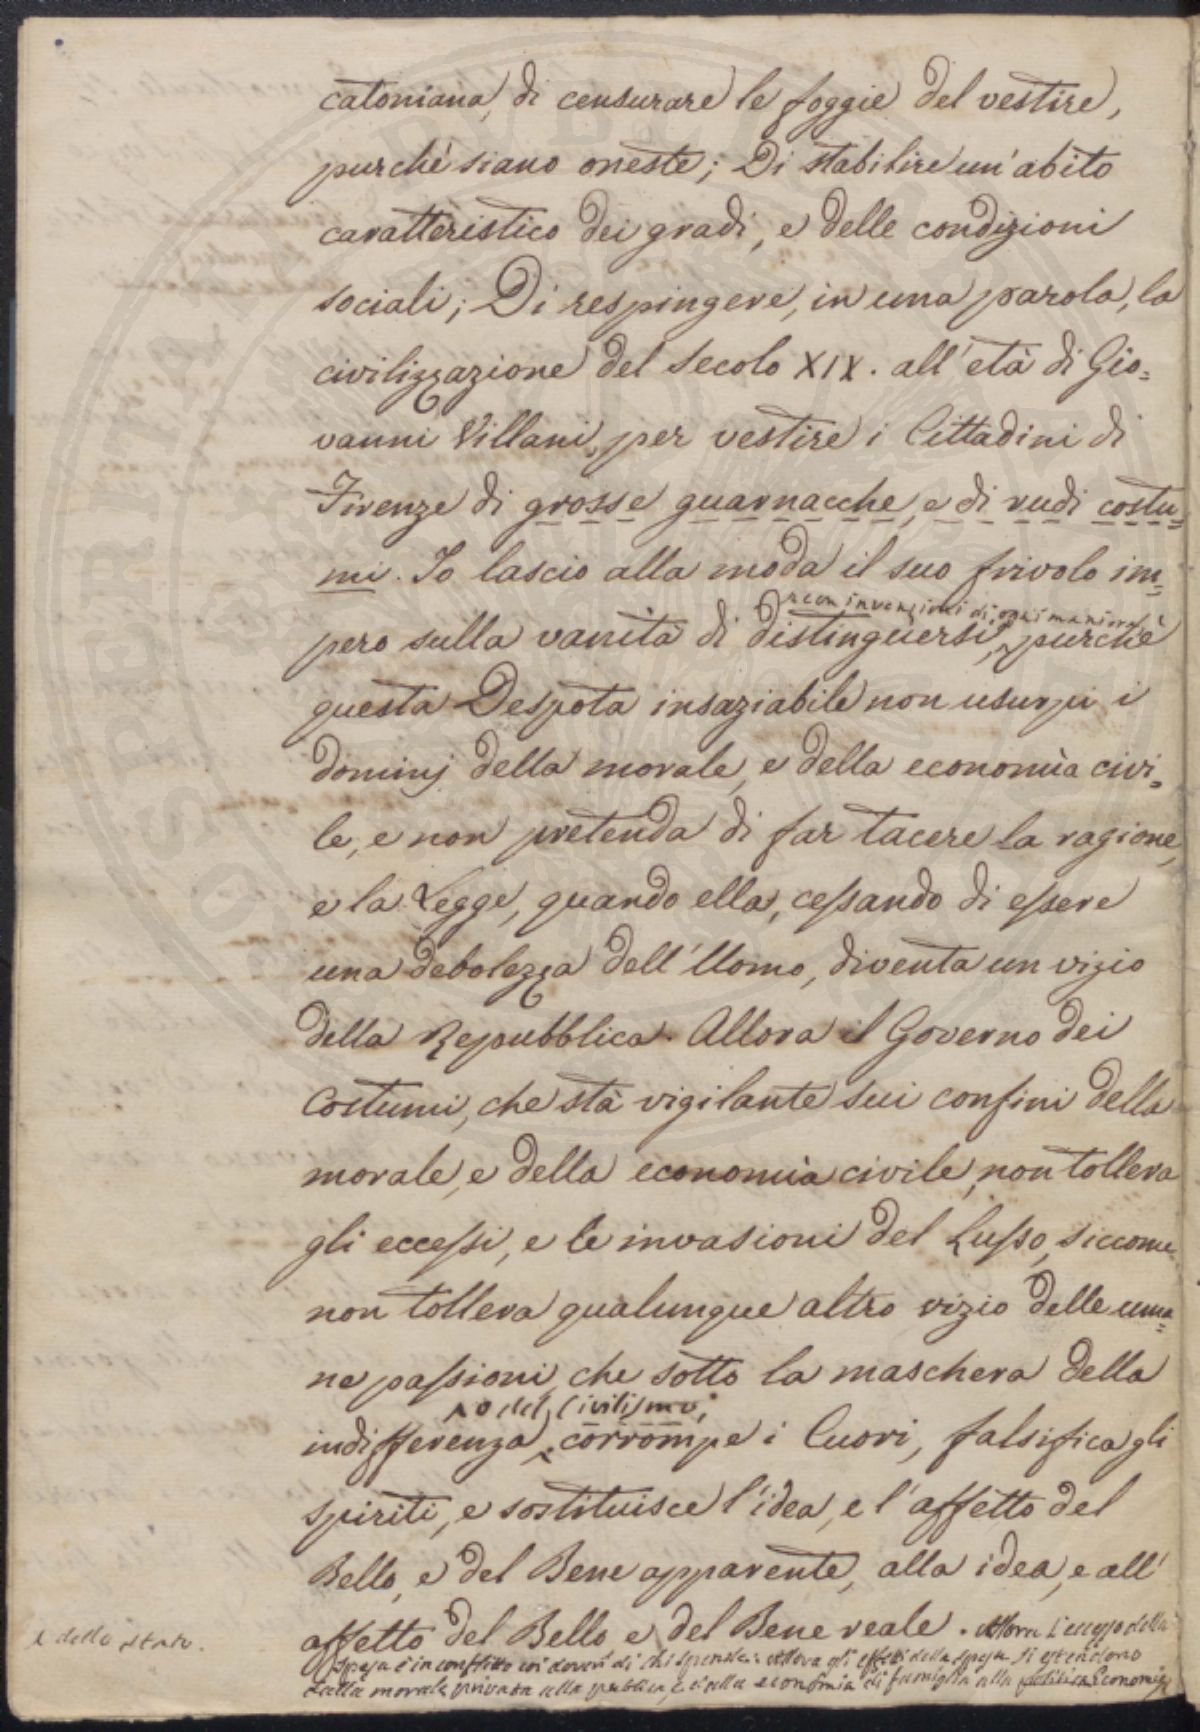 catoniana, di censurare le foggie del vestire,
purchè siano oneste; Di stabilire un'abito
caratteristico dei gradi, e delle condizioni
sociali; Di respingere, in una parola, la
civilizzazione del secolo XIX. all'età di Gio=
vanni Villani, per vestire i Cittadini di
Firenze di grosse guarnacche, e di rudi costu=
mi. Io lascio alla moda il suo frivolo im=
con invenzioni di ogni maniera
pero sulla vanità di distinguersi, purchè
questa Despota insaziabile non usurpi i
dominj della morale, e della economìa civi=
le, e non pretenda di far tacere la ragione,
e la Legge, quando ella, cessando di essere
una debolezza dell'Uomo, diventa un vizio
della Repubblica. Allora il Governo dei
Costumi, che stà vigilante sui confini della
morale, e della economìa civile, non tollera
gli eccessi, e le invasioni del Lusso, siccome
non tollera qualunque altro vizio delle uma=
ne passioni, che sotto la maschera della
o del Civilismo,
indifferenza, corrompe i Cuori, falsifica gli
spiriti, e sostituisce l'idea, e l'affetto del
Bello, e del Bene apparente, alla idea, e all'
affetto del Bello e del Bene reale. Allora l'eccesso della
spesa è in conflitto coi doveri di chi spende: Allora gli effetti della spesa si estendono
dalla morale privata alla pubblica, e dalla economia di famiglia alla politica Economia
e dello stato.
PROSPERITATI PUBLICAE